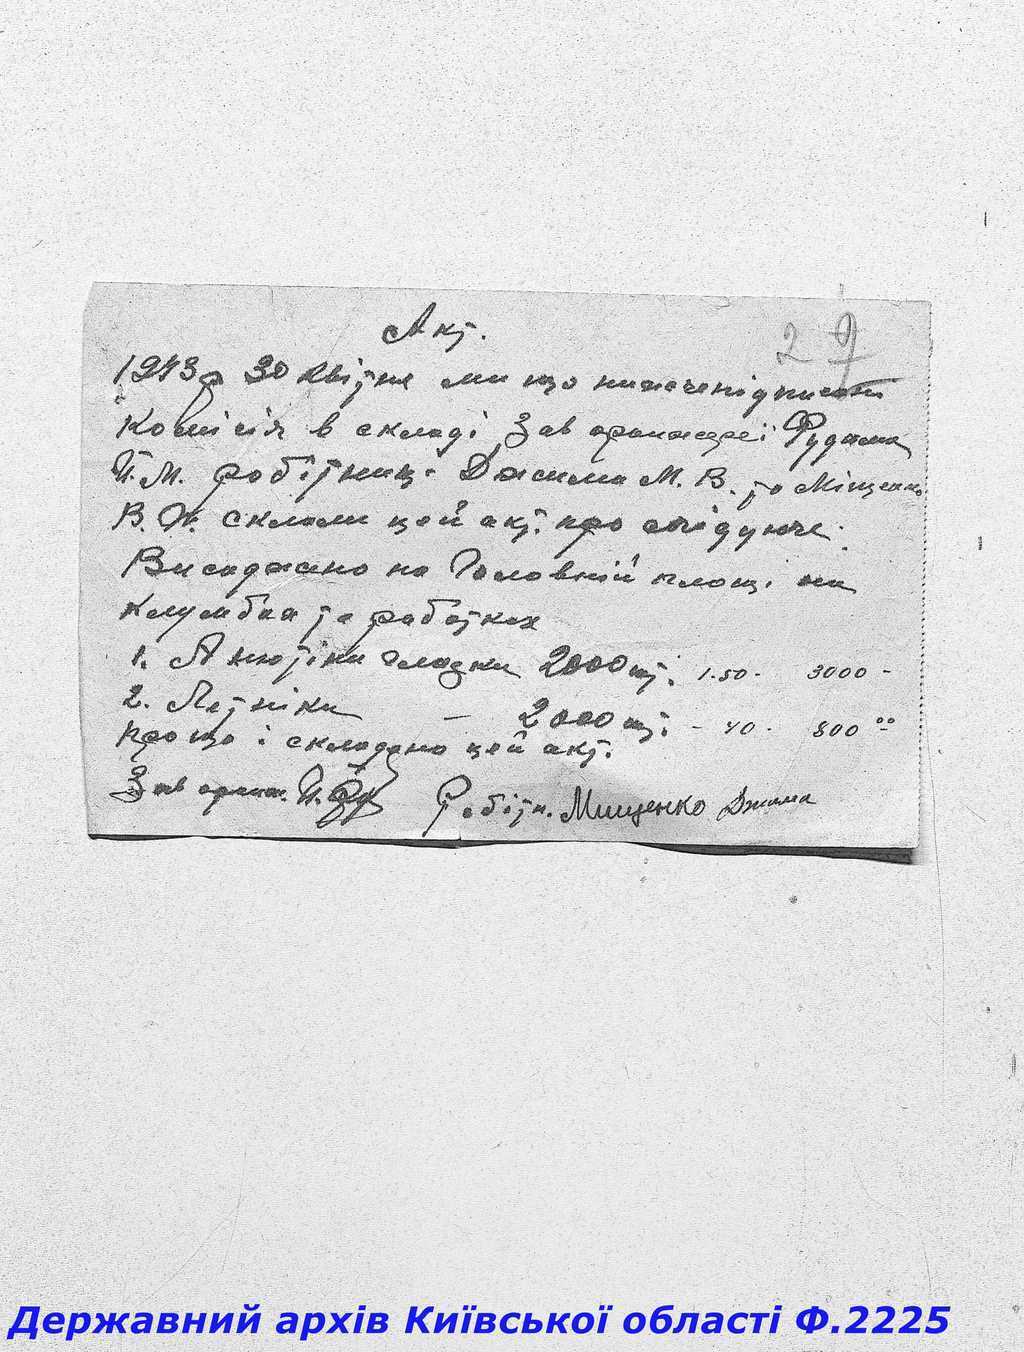 Акт.
29
1943 р 30 квітня ми що нижчепідписані
комісія в складі Зав оранжереї
П. М. робітниць М. В. та Міщенко
В. склали цей акт. про слідуюче.
Висаджено на Головній площі на
клумбах та рабатках
1. Анютіни гладки 2000 шт. 1.50 - 3000 -
2. Летніки — 2000 шт. - 40 - 800 00
Про що і складано цей акт.
Зав оранж. П. Робітн. Мищенко
Державний архів Київської області Ф.2225